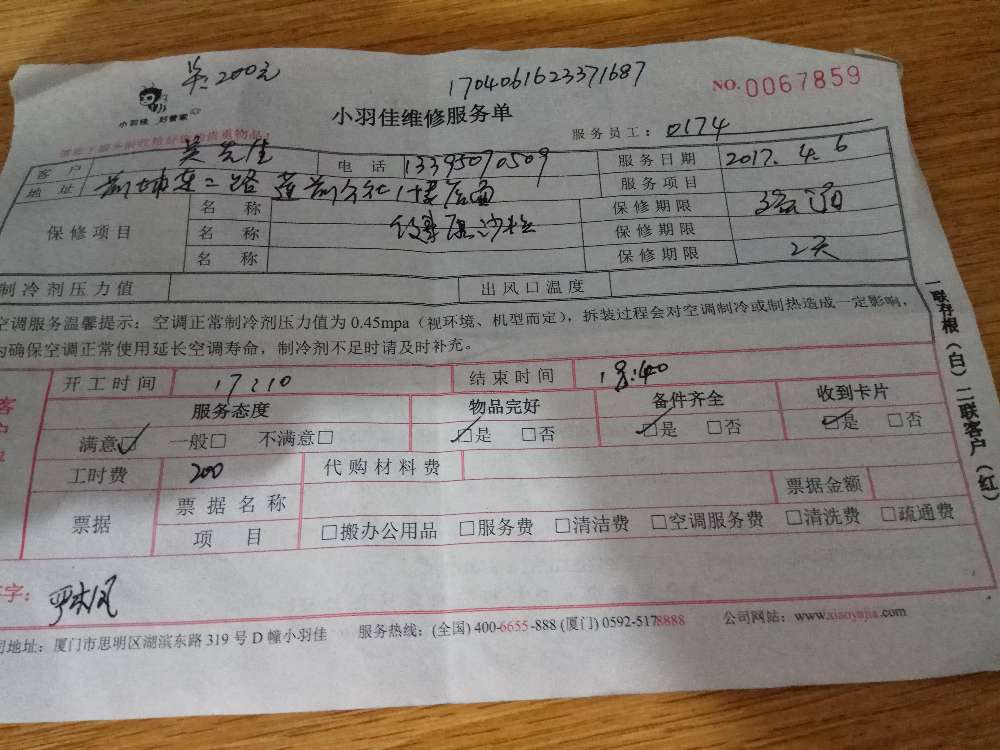 吴:200元
1704061623371687
NO. 0067859
小羽佳 好管家
小羽佳维修服务单
服务员工: 0174
客户 吴先生 电话 13395070509 服务日期 2017.4.6
地址 服务项目
保修项目 名称 保修期限
名称 保修期限
名称 保修期限 2天
制冷剂压力值 出风口温度
空调服务温馨提示:空调正常制冷剂压力值为0.45mpa(视环境、机型而定),拆装过程会对空调制冷或制热造成一定影响,
为确保空调正常使用延长空调寿命,制冷剂不足时请及时补充。
开工时间 17:10 结束时间 18:40
服务态度 物品完好 备件齐全 收到卡片
满意☑ 一般□ 不满意□ ☑是 □否 ☑是 □否 ☑是 □否
工时费 200 代购材料费
票据 票据名称 票据金额
项目 □搬办公用品 □服务费 □清洁费 □空调服务费 □清洗费 □疏通费
字:
司地址:厦门市思明区湖滨东路319号D幢小羽佳 服务热线:(全国)400-6655-888(厦门)0592-5178888 公司网站:www.xiaoyujia.com
一联存根(白)二联客户(红)